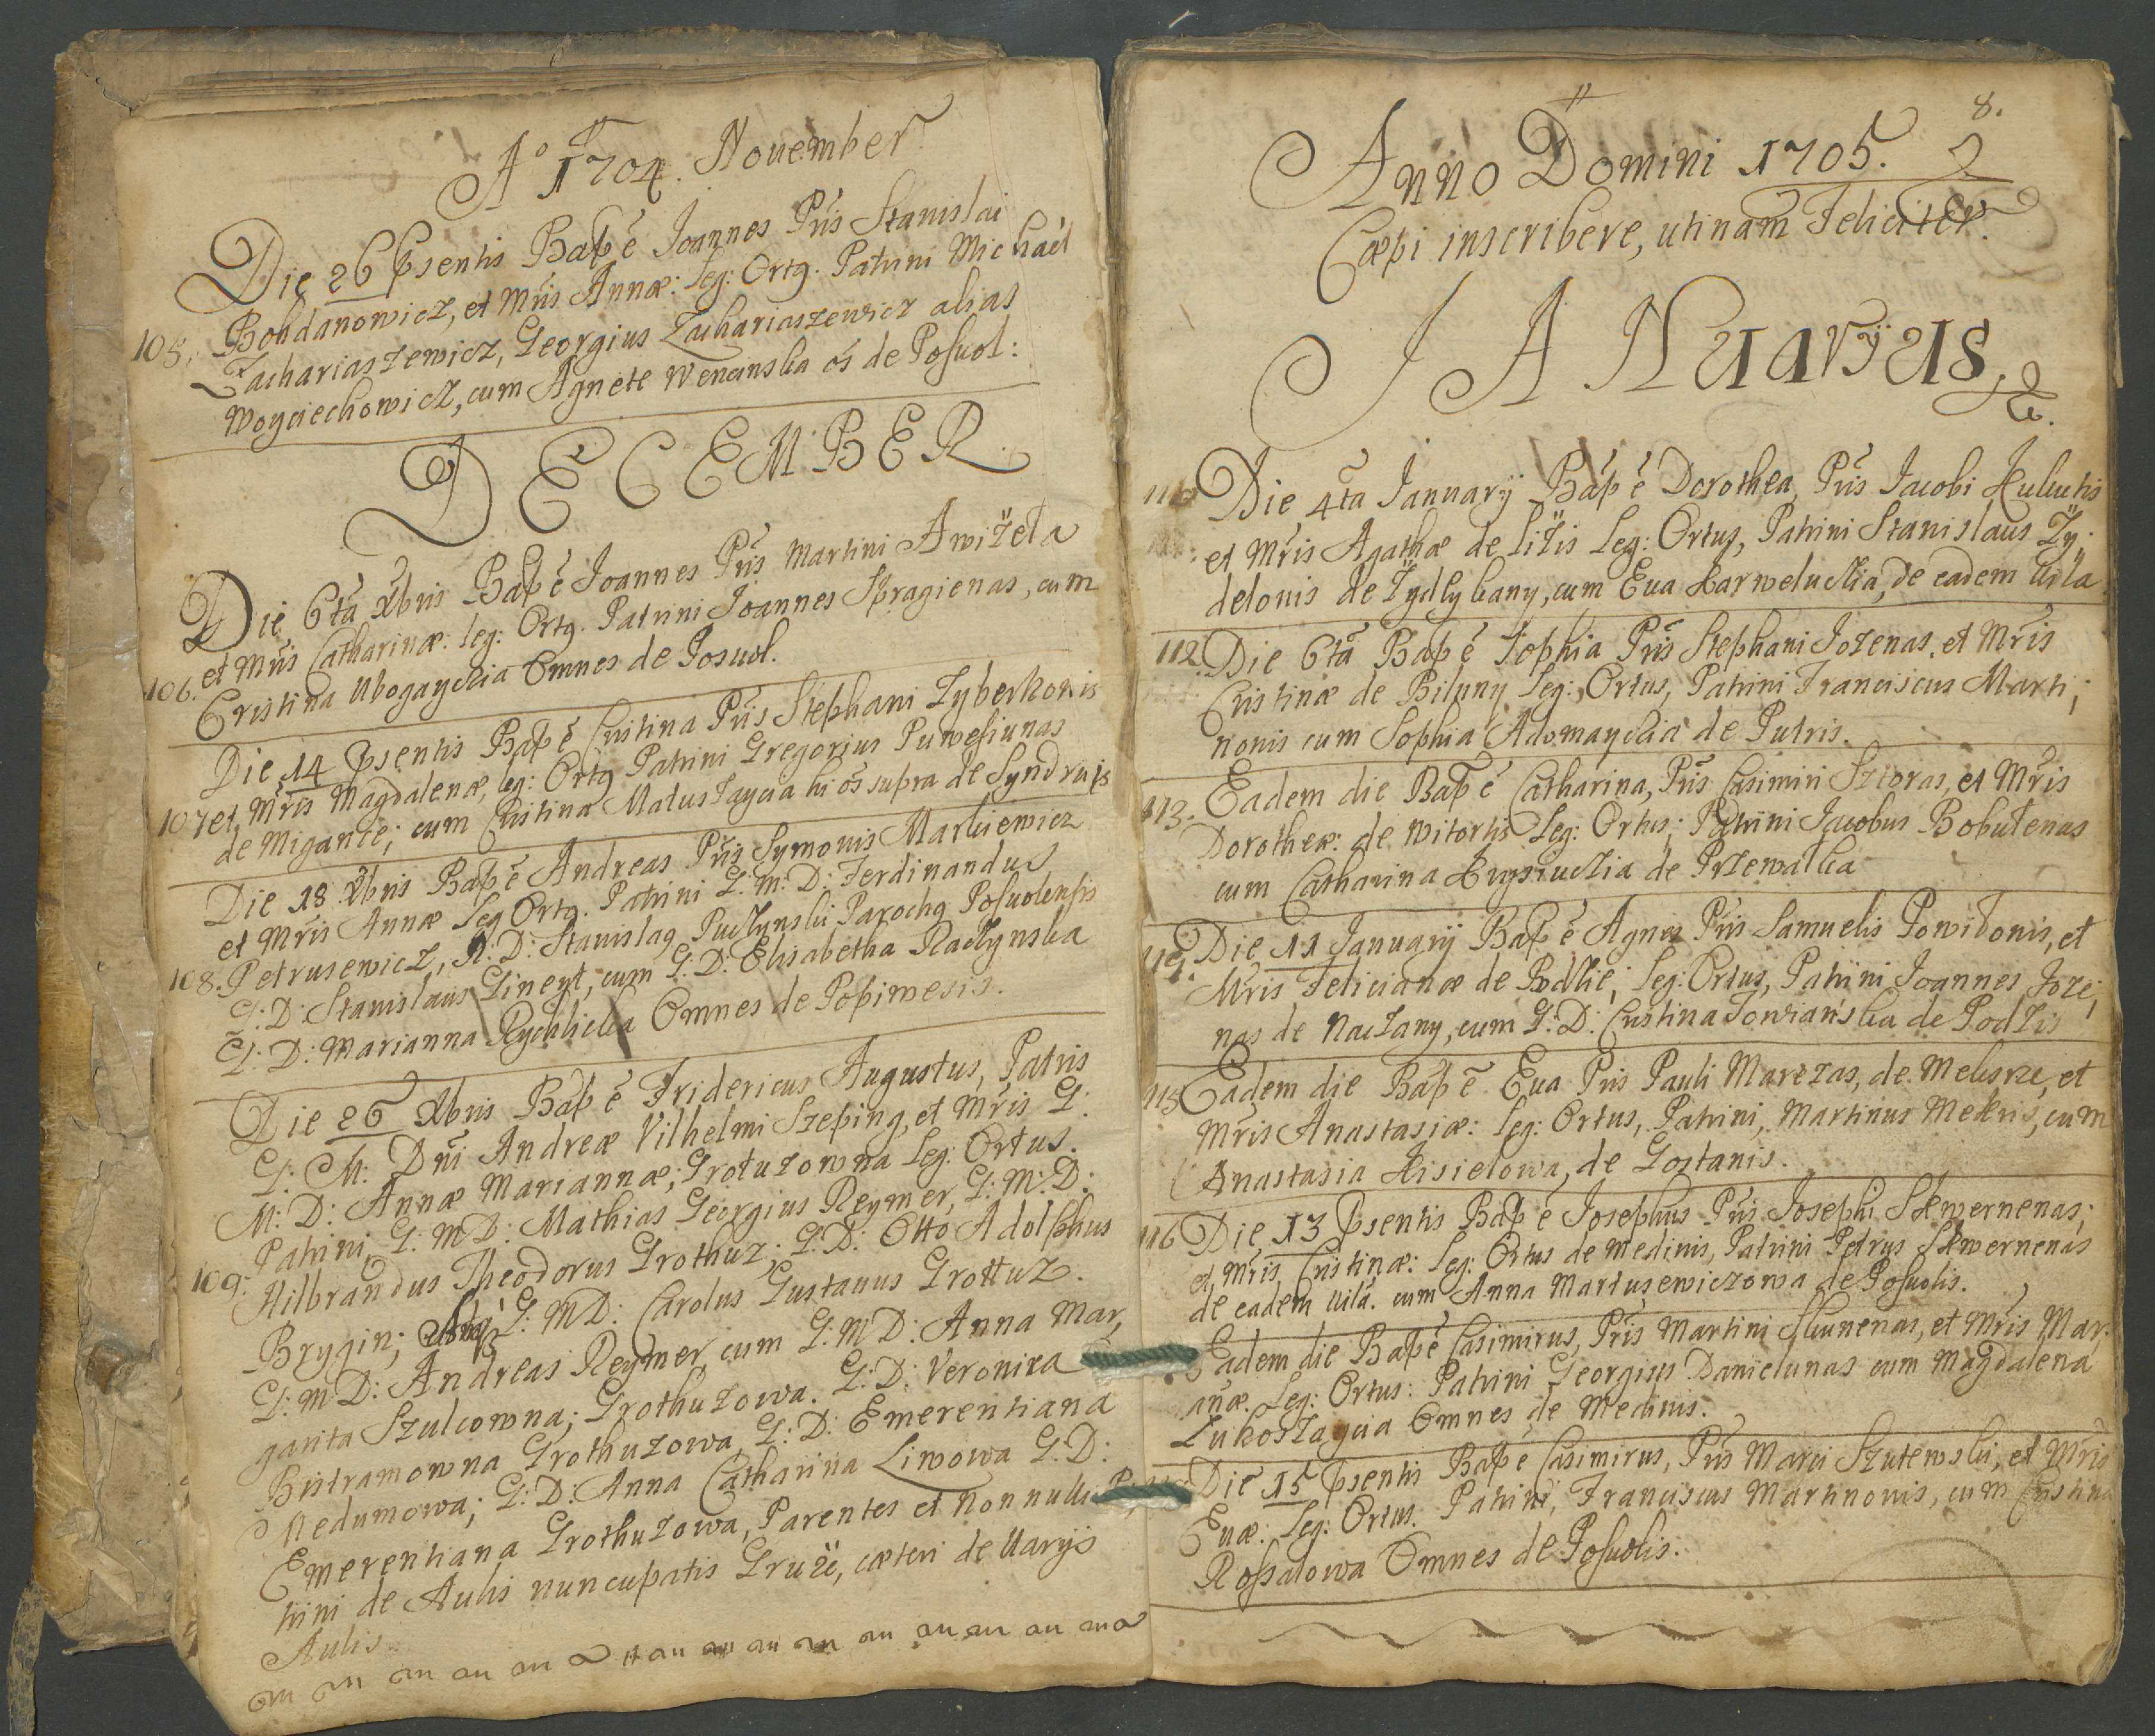 Aº 1704. Nouember
Die 26 p̃sentis Bap̃ ẽ Ioannes Pr̃is Stanislai
105. Bohdanowicz, et Mr̃is Annæ: Leg: Ortg. Patrini Michaël
Zachariaszewicz, Georgius Zachariaszewicz alias
Woyciechowicz, cum Agnete Wencinska õs de Posuol:
DECEMBER
Die 6ta Xbris Bap̃ ẽ Ioannes Pr̃is Martini Awiżela
et Mr̃is Catharinæ: leg: Ortg. Patrini Ioannes Spragienas, cum
106. Cristina Ubogayckia Omnes de Posuol.
Die 14 p̃sentis Bap̃ ẽ Cristina Pr̃is Stephani Zyberkonis
107 et Mr̃is Magdalenæ, leg: Ortg Patrini Gregorius Puwesiunas
de Migance; cum Cristina Matuszaycia hi õs supra de Syndraис
Die 18 Xbris Bap̃ ẽ Andreas Pr̃is Symonis Markiewicz
et Mr̃is Annæ Leg Ortg. Patrini G: M: D: Ferdinandus
108. Petrusewicz, A: D: Stanislag Puczynski Parochg Posuolensis
G: D: Stanislaus Gineyt, cum G: D: Elisabetha Raczynska
G: D: Marianna Rychlicka Omnes de Popiwesis.
Die 26 Xbris Bap̃ ẽ Fridericus Augustus, Patris
G: M: Dñi Andreæ Vilhelmi Szeping, et Mr̃is G:
M: D: Annæ Mariannæ; Grotuzowna Leg: Ortus.
Patrini, G: MD: Mathias Georgius Reymer, G: M: D:
109. Hilbrandus Theodorus Grothuz; G: D: Otto Adolphus
Brygin; G: MD: Carolus Gustauus Grottuz.
G: M D: Andreas Reymer, cum G: MD: Anna Mar,
garita Szulcowna; Grothuzowa. G: D: Veronica
Butramowna Grothuzowa, G: D: Emerentiana
Nedumowa; G: D: Anna Catharina Liwowa G: D:
Emerentiana Grothuzowa, Parentes et nonnulli Pa
trini de Aulis nuncupatis Grużĕ, cæteri de Uarijs
Aulis.
8.
Anno Domini 1705.
Cæpi inscribere, utinam Feliciter.
IANuarÿus,
Die 4ta Ianuarÿ Bap̃ ẽ Dorothea, Pr̃is Iacobi Kulutis
et Mr̃is Agathæ de liżis Leg: Ortus, Patrini Stanislaus Zy;
delonis de Zydlykany, cum Eua Karweluckia, de eadem Uila
112. Die 6ta Bap̃ ẽ Sophia Pr̃is Stephani Iozenas, et Mr̃is
Cristinæ de Biluny Leg: Ortus, Patrini Franciscus Marti;
nonis cum Sophia Adomayckia de Putris.
113. Eadem die Bap̃ ẽ Catharina, Pr̃is Casimiri Szioras, et Mr̃is
Dorotheæ: de Witortis Leg: Ortus; Patrini Iacobus Bobutenas
cum Catharina Krysiuckia de Przewalka
114. Die 11 Ianuarij Bap̃ ẽ Agnes Pr̃is Samuelis Powidonis, et
Mr̃is Felicianæ de Podźie; Leg: Ortus, Patrini Ioannes Joze;
nas de Naczany, cum G: D: Cristina Towiańska de Podzis
115 Eadem die Bap̃ ẽ Eua Pr̃is Pauli Marezas, de Meksze, et
Mr̃is Anastasiæ: Leg: Ortus, Patrini, Martinus Mekris, cum
Anastasia Kisielowa, de Goztanis.
116 Die 13 p̃sentis Bap̃ ẽ Iosephus Pr̃is Iosephi Skwernenas;
et Mr̃is Cristinæ: Leg: Ortus de Medinis, Patrini Petrus Skwernenas
de eadem Uilâ. cum Anna Martusewiczowa de Posuolis.
Eadem die Bap̃ ẽ Casimirus, Pr̃is Martini Skunenas, et Mr̃is Mar
anæ. Leg: Ortus: Patrini Georgius Danielunas cum Magdalena
Lukoszaycia Omnes de Medinis.
Die 15 p̃sentis Bap̃ ẽ Casimirus, Pr̃is Marci Szutewski, et Mr̃is
Euæ: Leg: Ortus. Patrini, Franciscus Martinonis, cum Cristina
Rossalowa Omnes de Posuolis.